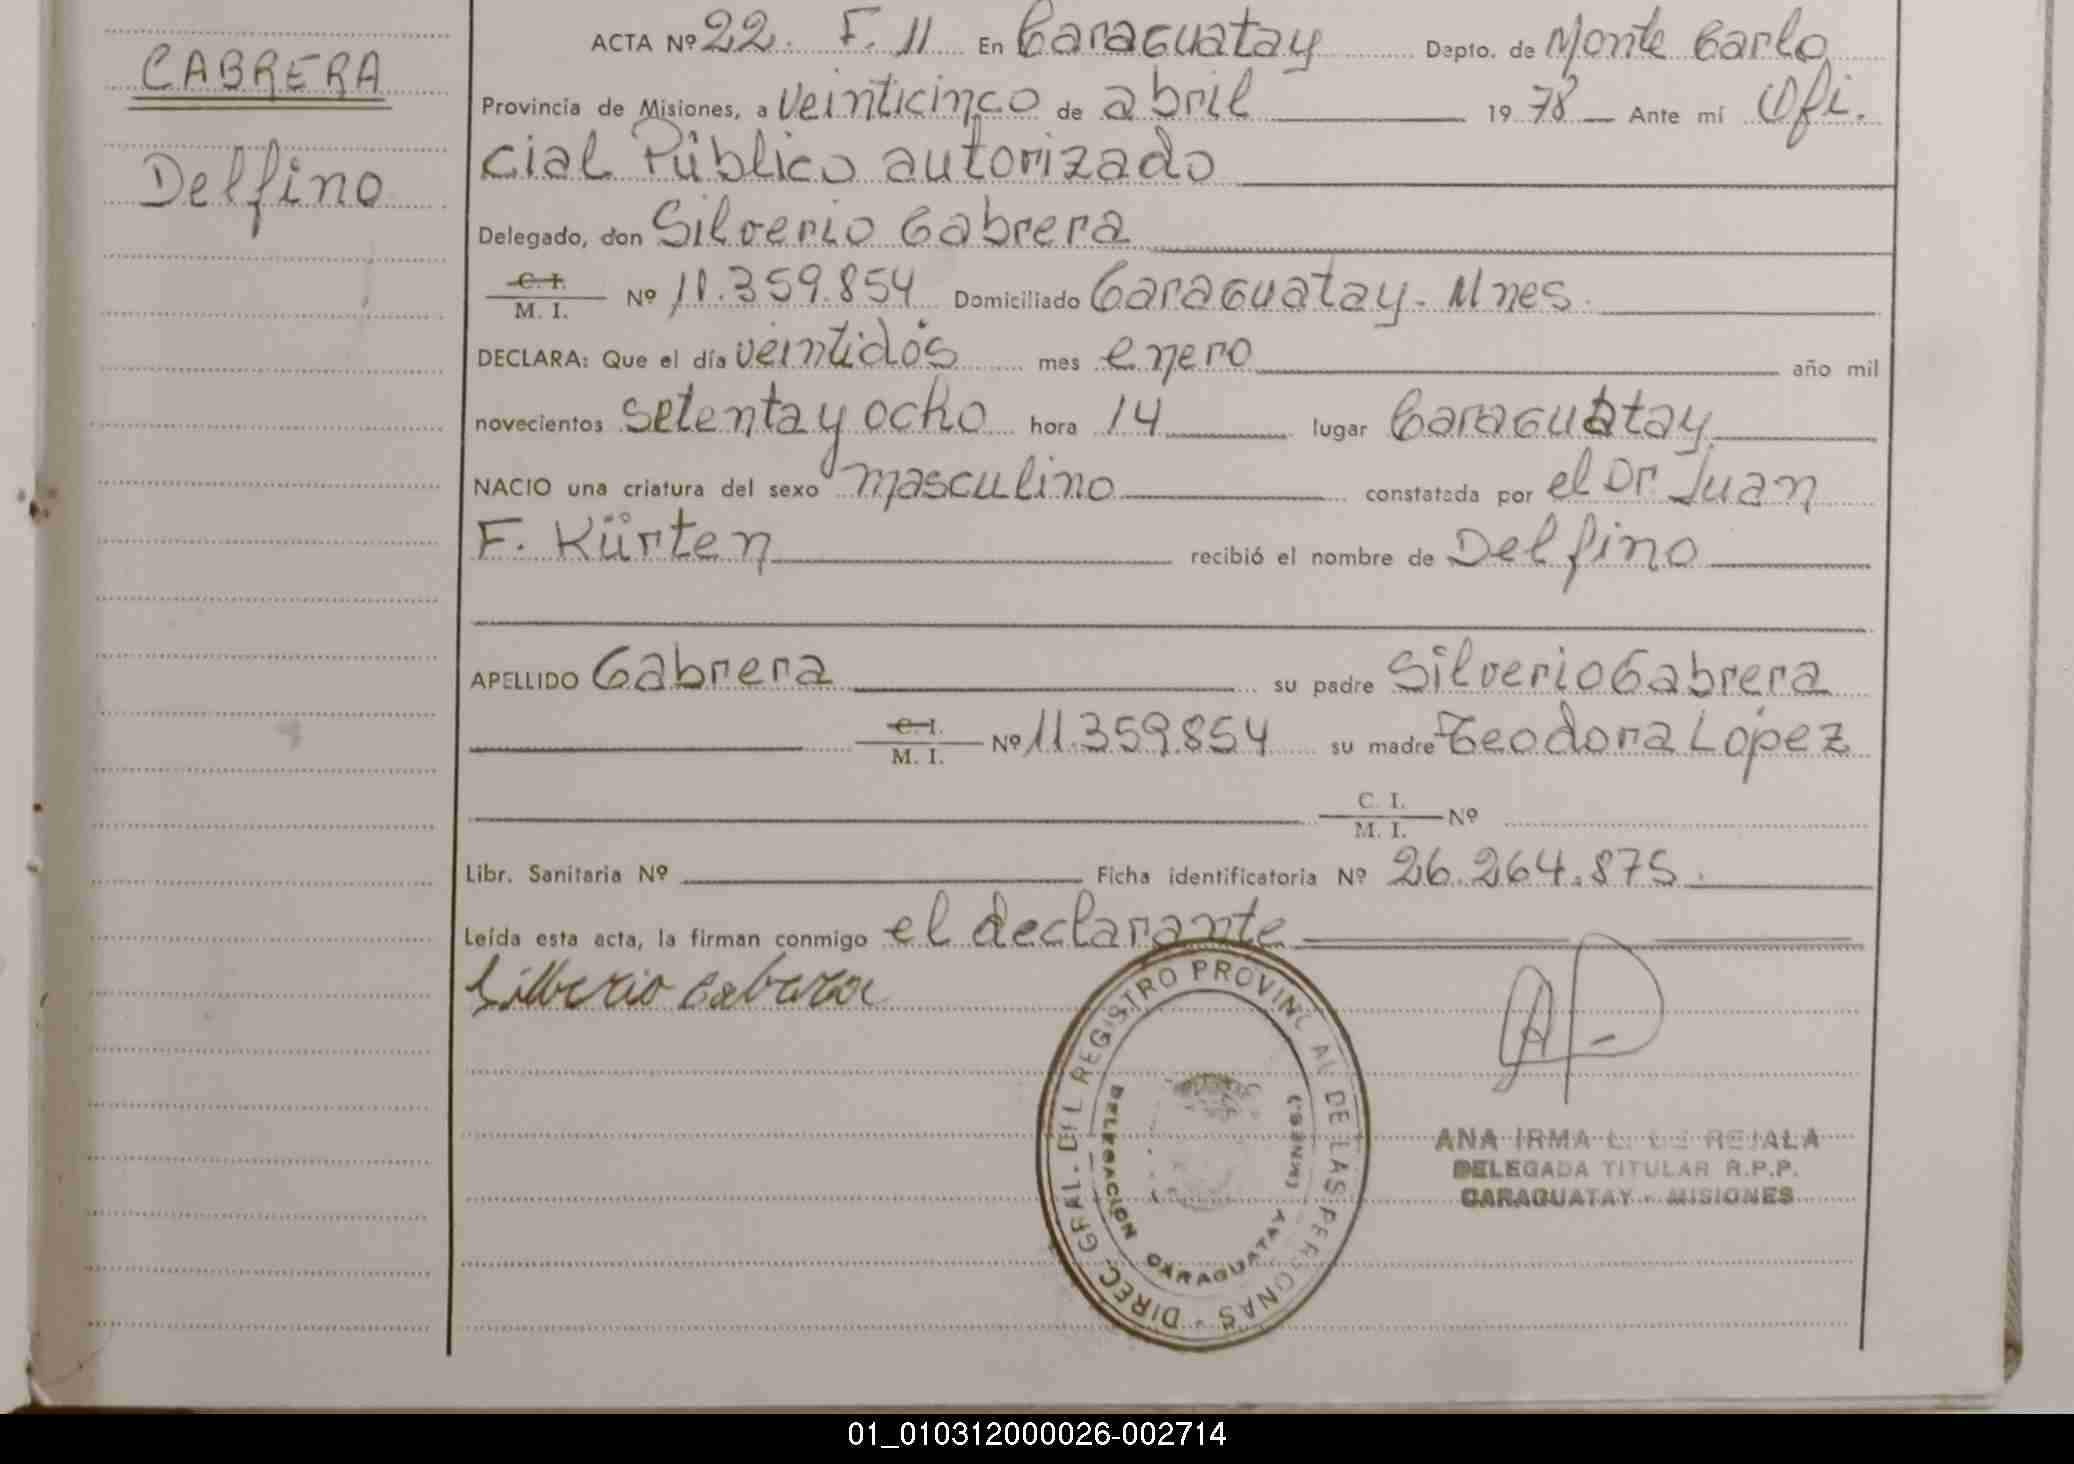 CABRERA
Delfino
ACTA Nº 22. F. 11 En Caraguatay Depto. de Monte Carlo
Provincia de Misiones, a veinticinco de abril 1978 Ante mí Ofi.
cial Público autorizado
Delegado, don Silverio Cabrera
C. I.
M. I. Nº 11.359.854 Domiciliado Caraguatay - Mnes.
DECLARA: Que el día veintidós mes enero año mil
novecientos setenta y ocho hora 14 lugar Caraguatay
NACIO una criatura del sexo masculino constatada por el Dr Juan
F. Kürten recibió el nombre de Delfino
APELLIDO Cabrera su padre Silverio Cabrera
C. I.
M. I. Nº 11.359.854 su madre Teodora López
C. I.
M. I. Nº
Libr. Sanitaria Nº Ficha identificatoria Nº 26.264.875.
Leída esta acta, la firman conmigo el declarante
Silberio Cabrera
DIREC. GRAL. DEL REGISTRO PROVINCIAL DE LAS PERSONAS
DELEGACION CARAGUATAY (MNES.)
ANA IRMA L. DE REJALA
DELEGADA TITULAR R.P.P.
CARAGUATAY - MISIONES
01_010312000026-002714